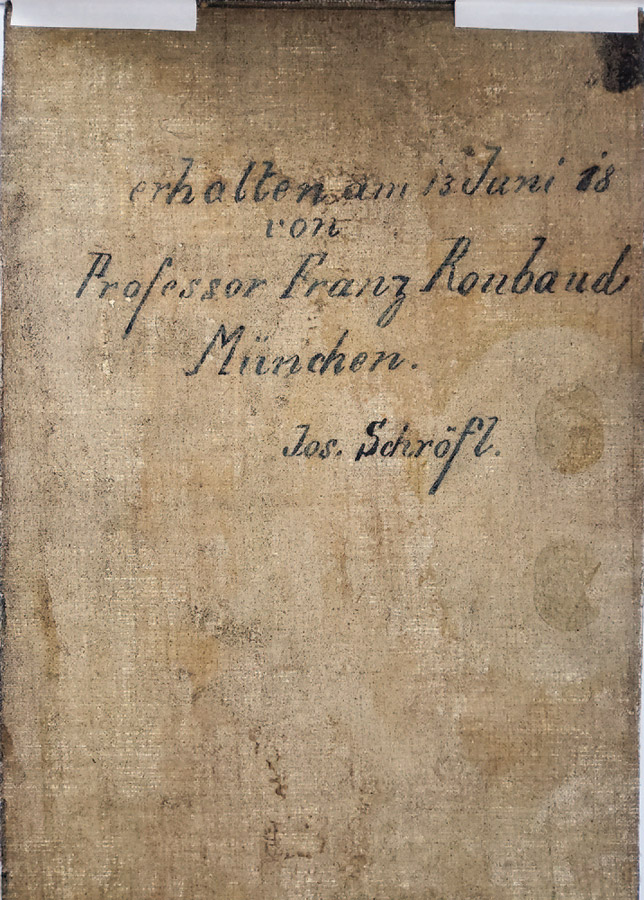 erhalten am 13 Juni 18
von
Professor Franz Roubaud
München.
Jos. Schröfl.